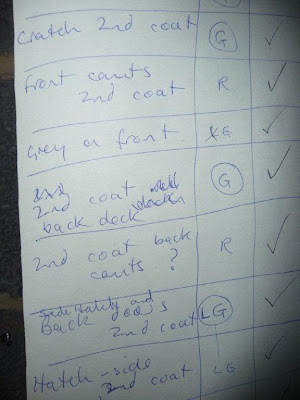 Cratch 2nd coat G ✓
Front cants
2nd coat R ✓
Grey on front. G ✓
2nd coat
back deck G ✓
2nd coat back
cants ? R ✓
and
Back doors
2nd coat LG ✓
Hatch-side
2nd coat LG ✓